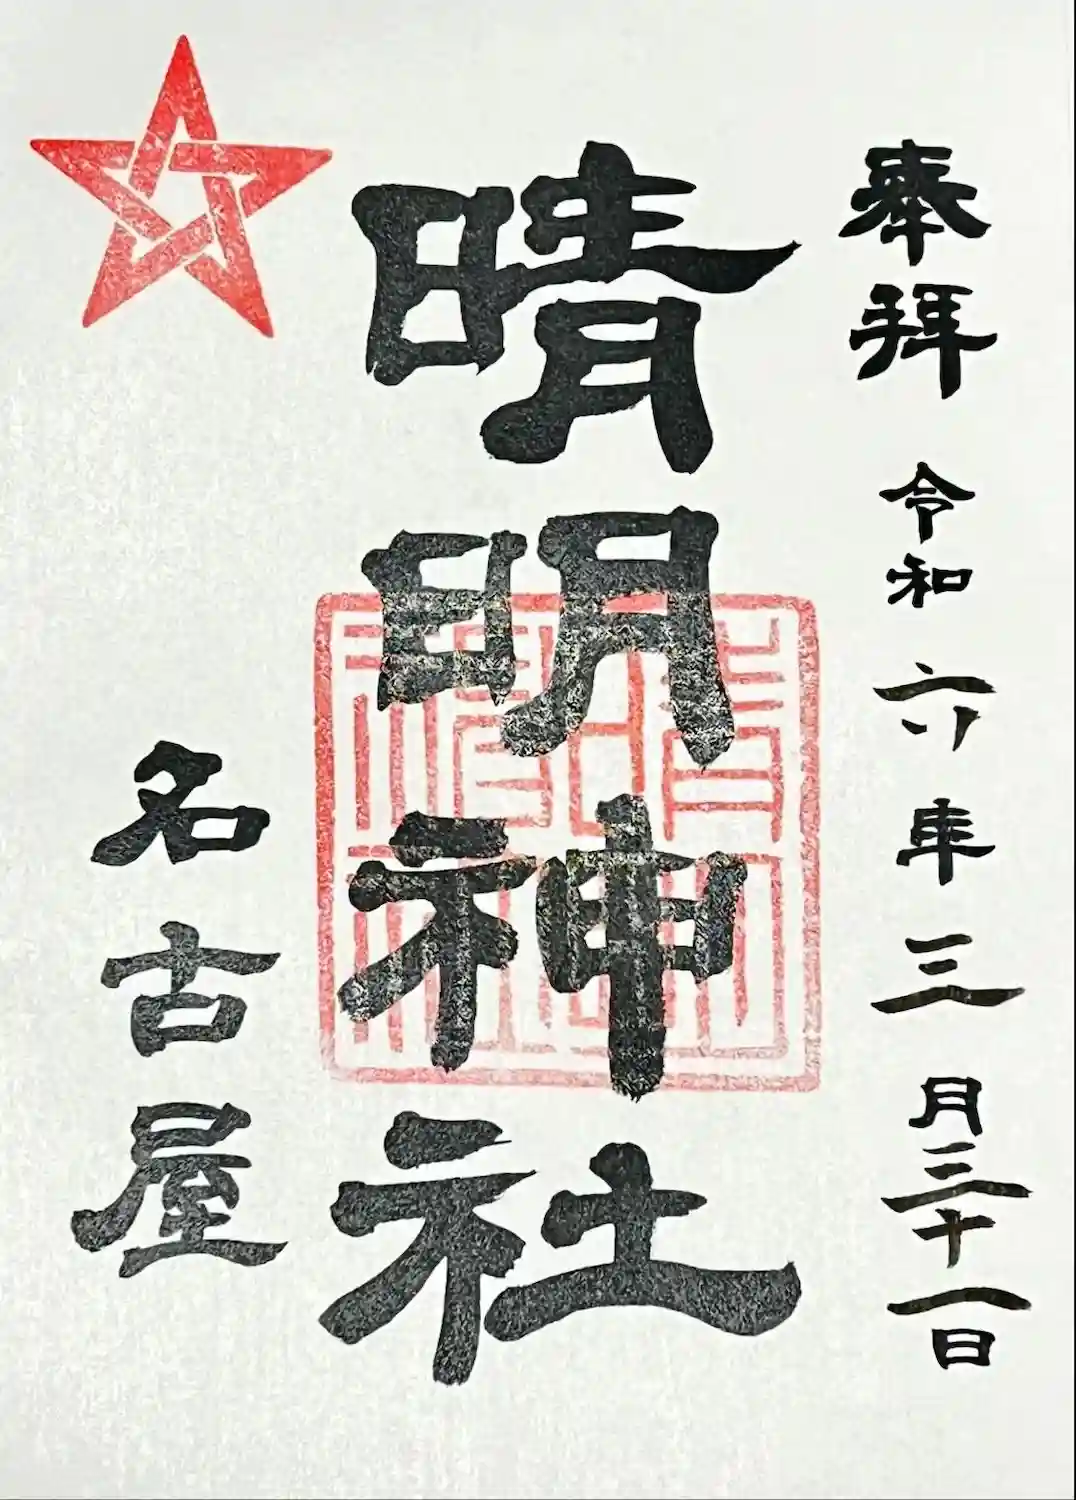 奉拝 令和六年三月三十一日
晴明神社
名古屋
晴明神社